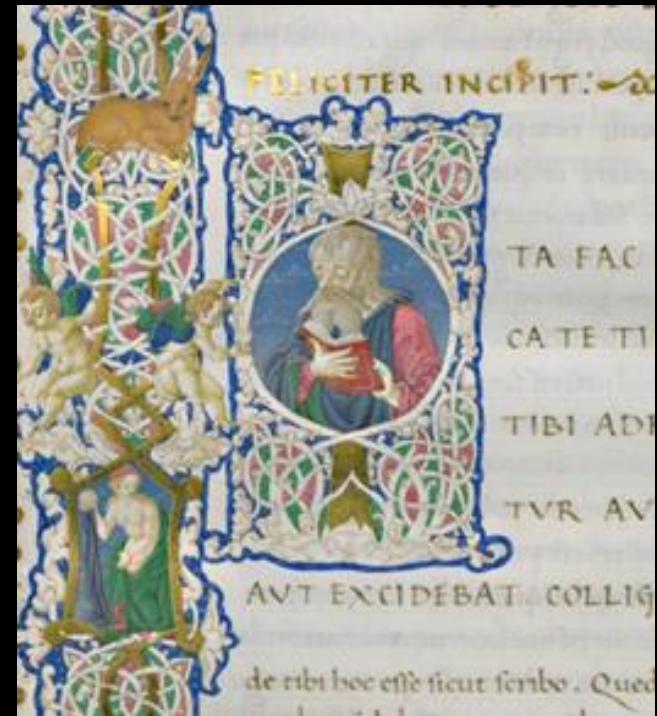 FELICITER INCIPIT:
TA FAC
CA TE TI
TIBI ADF
TVR AV
AVT EXCIDEBAT. COLLIG
de tibi hoc esse sicut scribo. Qued